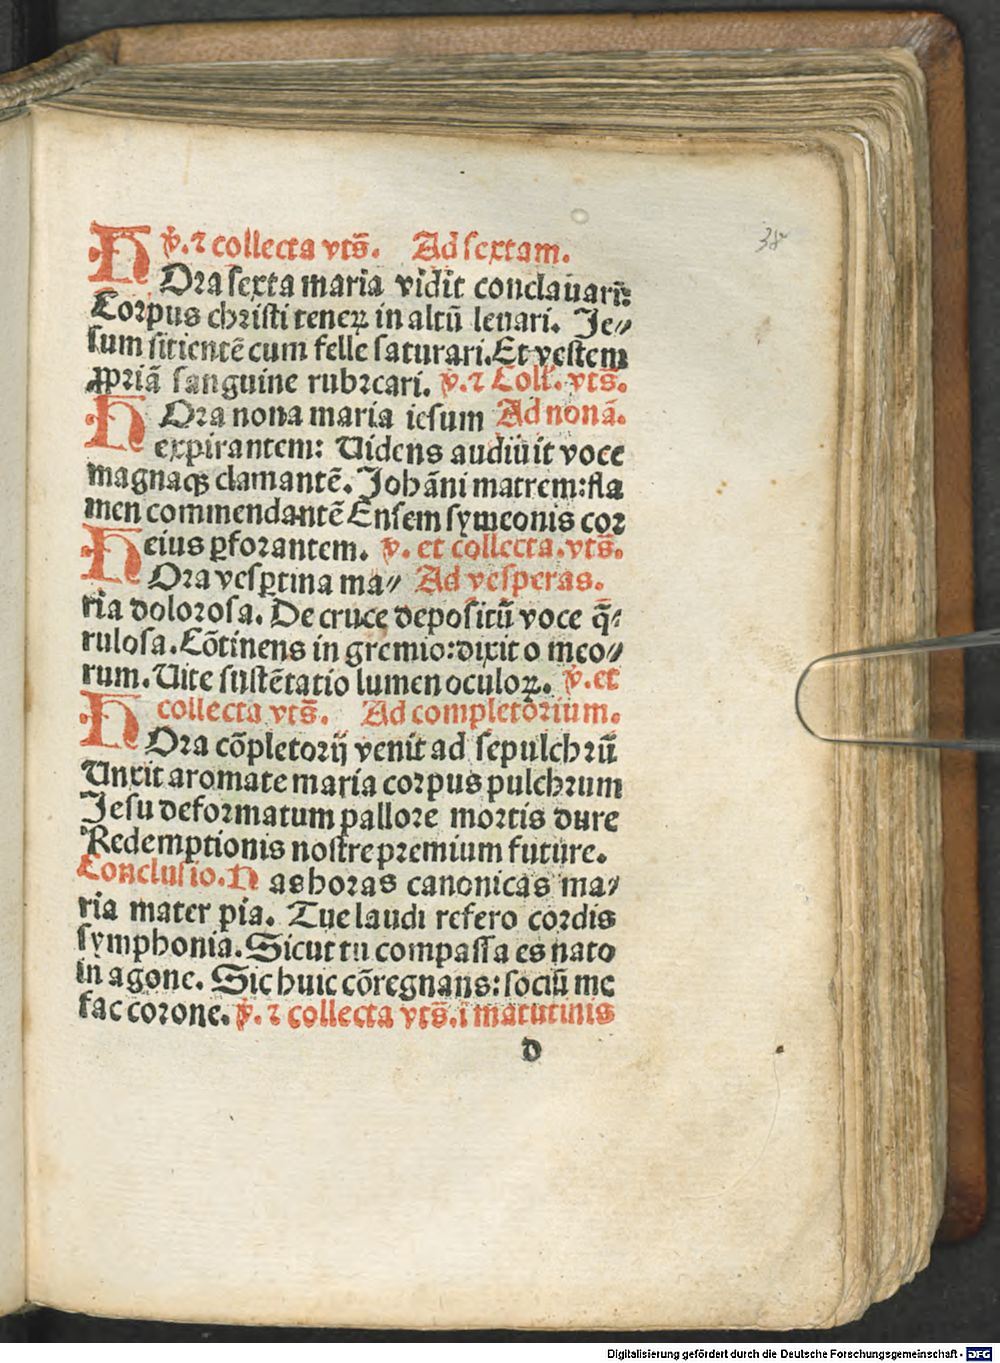 38
℣. ⁊ collecta vts̄. Ad sextam.
HOra sexta maria vidit conclauari:
Corpus christi teneꝝ in altū leuari. Je//
sum sitientē cum felle saturari. Et vestem
ꝓpriā sanguine rubꝛcari. ℣. ⁊ Coll̄. vts̄.
HOra nona maria iesum Ad nonā.
expirantem: Uidens audiuit voce
magnaqꝫ clamantē. Johāni matrem: fla
men commendantē Ensem symeonis cor
eius ꝑforantem. ℣. et collecta. vts̄.
HOra vesꝑtina ma// Ad vesperas.
ria dolorosa. De cruce depositū voce q̄/
rulosa. Cōtinens in gremio: dixit o meo//
rum. Uite sustētatio lumen oculoꝝ. ℣. et
collecta vts̄. Ad completorium.
HOra cōpletorij venit ad sepulchrū
Unxit aromate maria corpus pulchrum
Jesu deformatum pallore mortis dure
Redemptionis nostre premium future.
Conclusio. Has horas canonicas ma/
ria mater pia. Tue laudi refero cordis
symphonia. Sicut tu compassa es nato
in agone. Sic huic cōregnans: sociū me
fac corone. ℣. ⁊ collecta vts̄. i matutinis
d
Digitalisierung gefördert durch die Deutsche Forschungsgemeinschaft - DFG